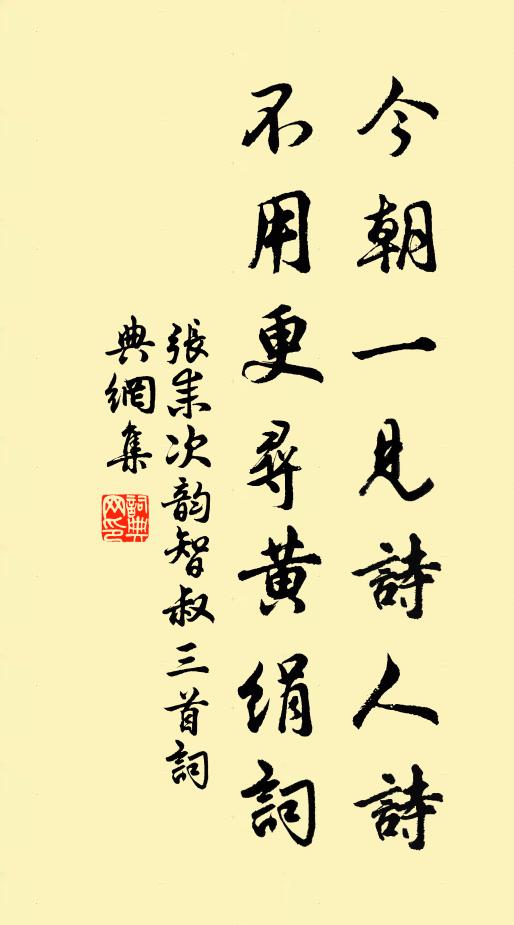 今朝一見詩人詩
不用更尋黃絹詞
張耒次韵智叔三首詞
典網集
詞典網印